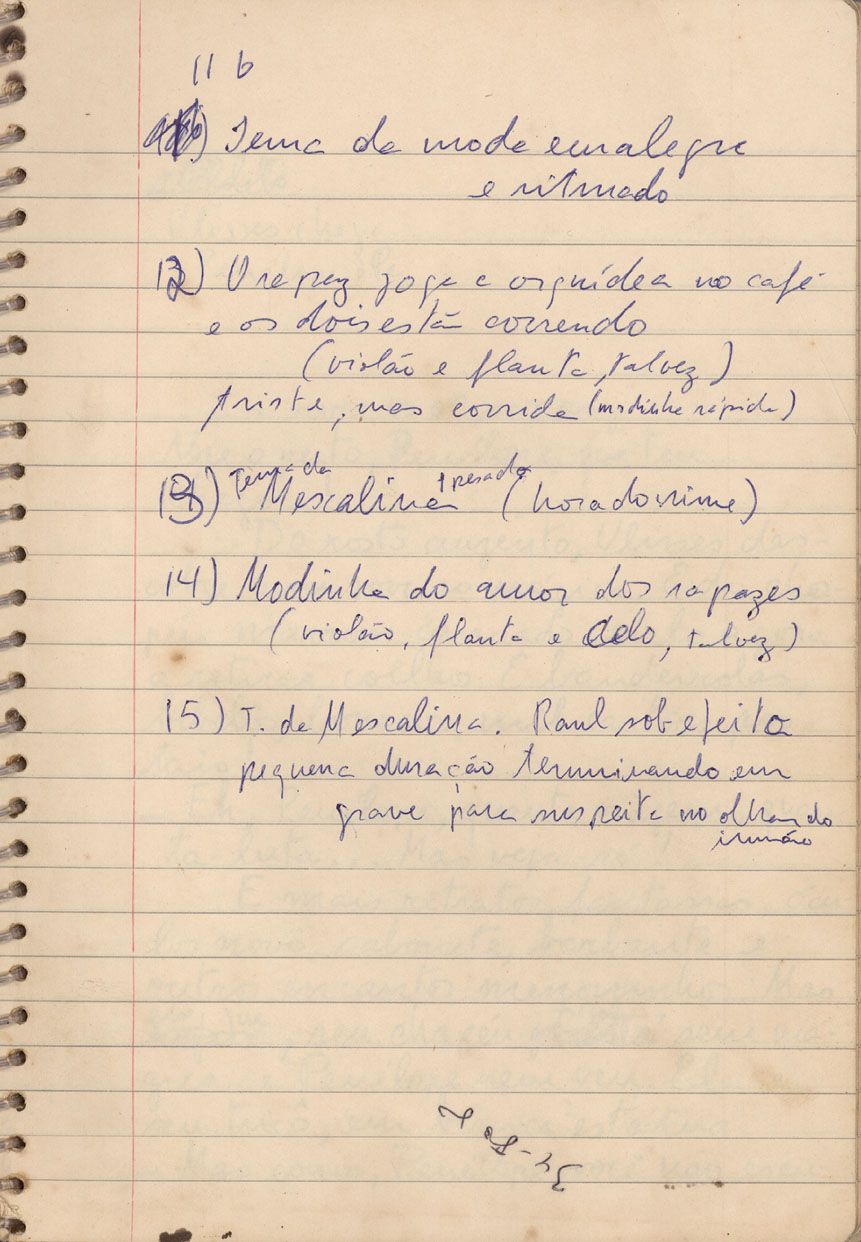 11 b
Tema da moda em alegre
e ritmado
12) O rapaz joga a orquídea no café
e os dois estão correndo
(violão e flauta, talvez)
triste, mas corrida (modinha rápida)
13) Tema da Mescalina + pesado (hora do crime)
14) Modinha do amor dos rapazes
(violão, flauta e Celo, talvez)
15) T. da Mescalina. Raul sob efeito
pequena duração terminando em
grave para suspeita no olhar do
irmão